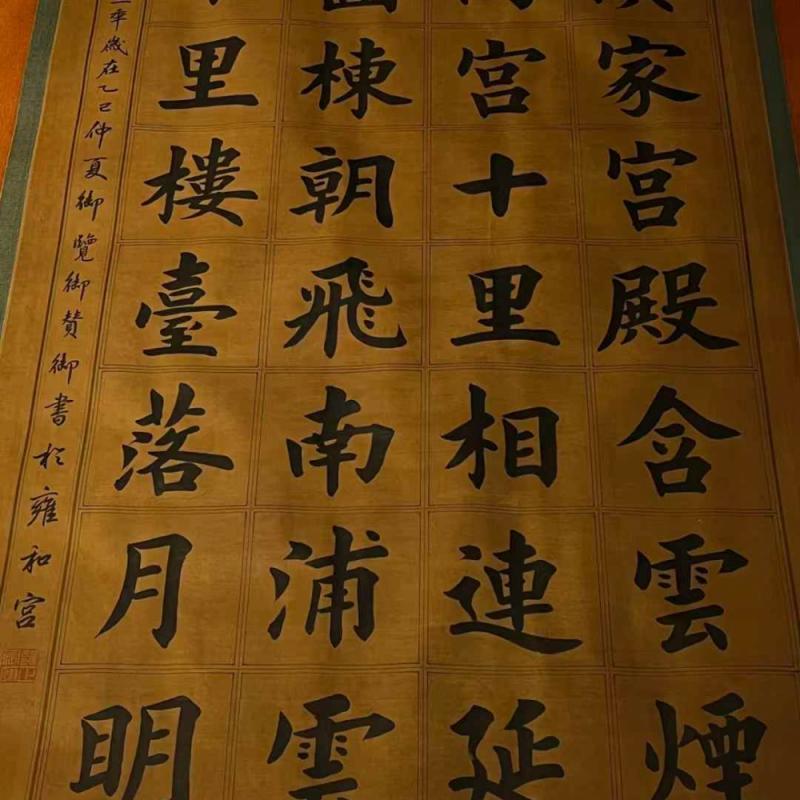 家宮殿含雲煙
宮十里相連延
棟朝飛南浦雲
里樓臺落月明
一年歲在乙巳仲夏御覽御贊御書於雍和宮